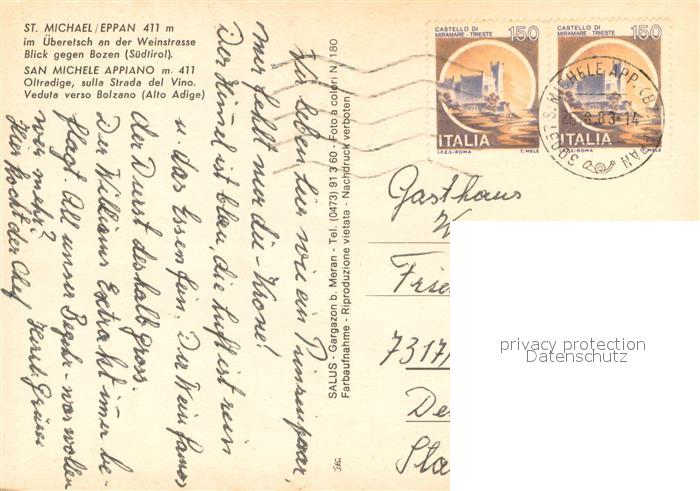 ST. MICHAEL/EPPAN 411 m
im Überetsch an der Weinstrasse
Blick gegen Bozen (Südtirol).
SAN MICHELE APPIANO m. 411
Oltradige, sulla Strada del Vino.
Veduta verso Bolzano (Alto Adige)
Wir leben hier wie ein Prinzenpaar,
mir fehlt nur die - Krone!
Der Himmel ist blau, die Luft ist rein
u. das Essen fein. Der Wein famos
der Durst deshalb gross.
Der Williams Extrakt immer be-
fragt. All unser Begehr - was wollen
wir mehr?
Hier kocht der Chef
Herzl. Grüsse
SALUS - Gargazon b. Meran - Tel. (0473) 91 3 60 - Foto a colori N. 180
Farbaufnahme - Riproduzione vietata - Nachdruck verboten
CASTELLO DI
MIRAMARE - TRIESTE
150
ITALIA
I.P.Z.S.-ROMA
T. MELE
CASTELLO DI
MIRAMARE - TRIESTE
150
ITALIA
I.P.Z.S.-ROMA
T. MELE
39057 S. MICHELE APP. (BZ)
8.83-14
Gasthaus
W
Frie
7317/
De
Sta
privacy protection
Datenschutz